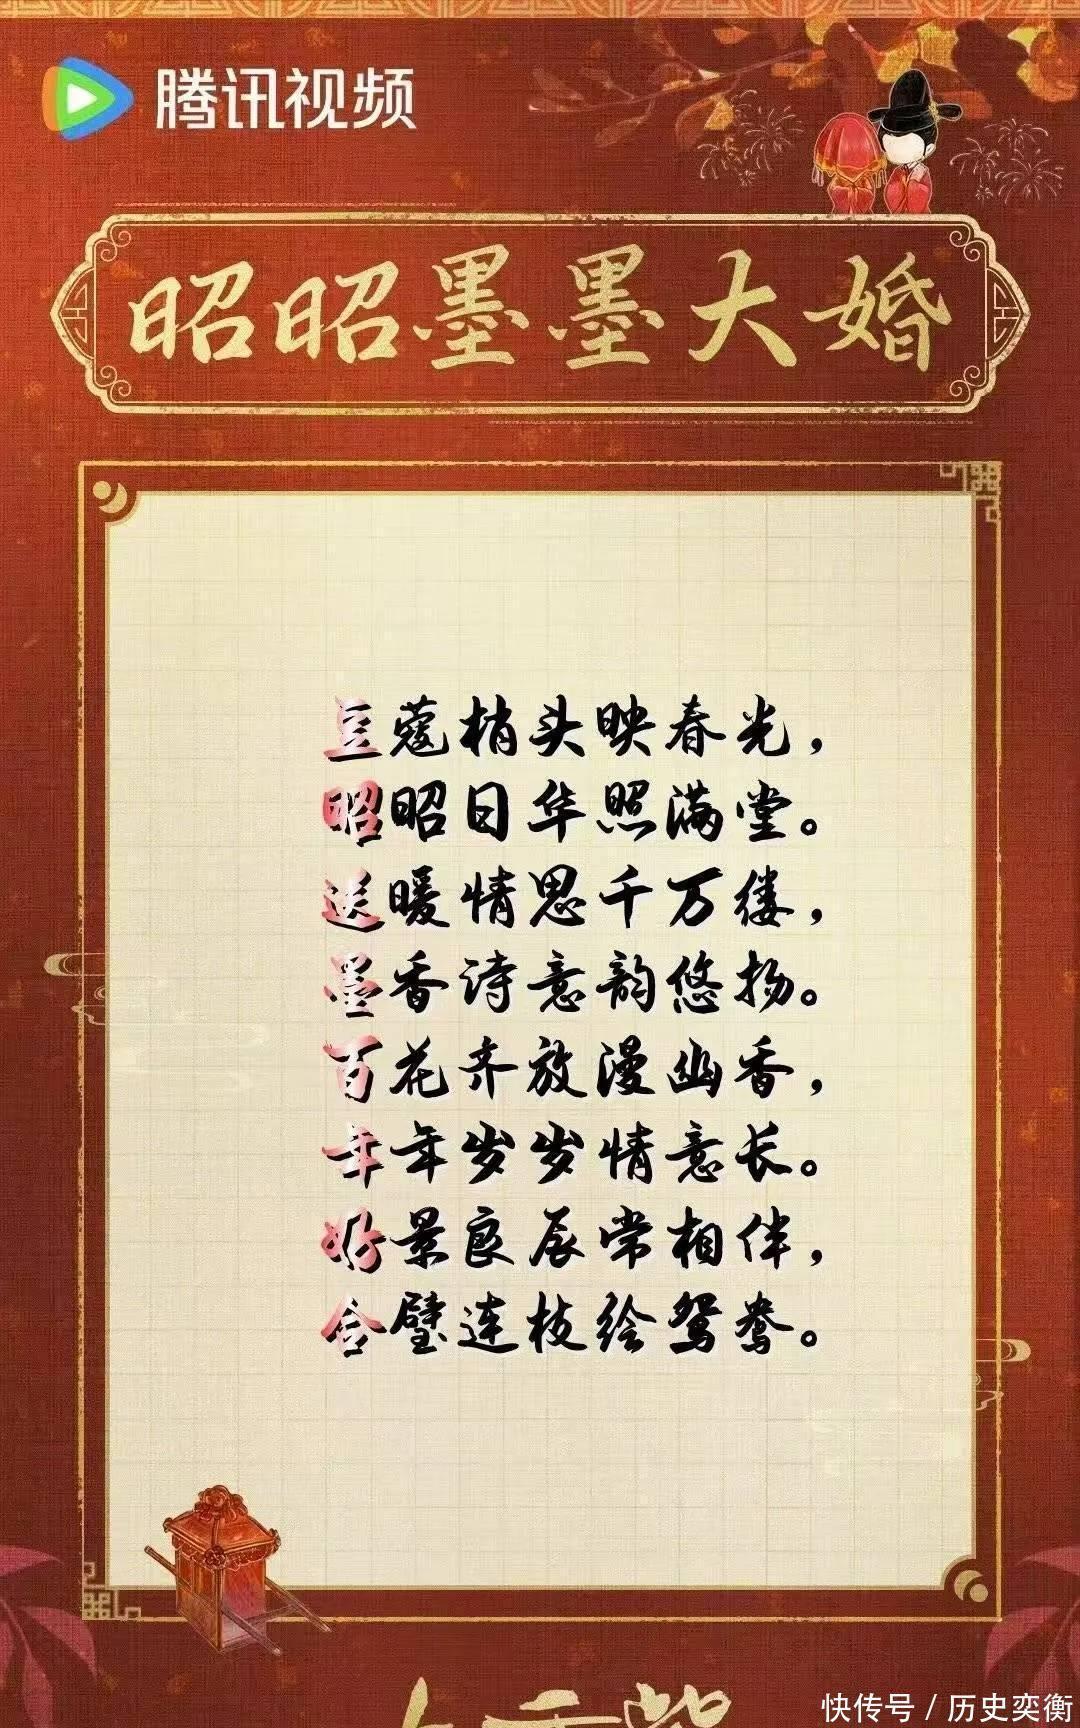 腾讯视频
昭昭墨墨大婚
豆蔻梢头映春光，
昭昭日华照满堂。
送暖情思千万缕，
墨香诗意韵悠扬。
百花齐放漫幽香，
年年岁岁情意长。
好景良辰常相伴，
合璧连枝绘鸳鸯。
快传号/历史奕衡